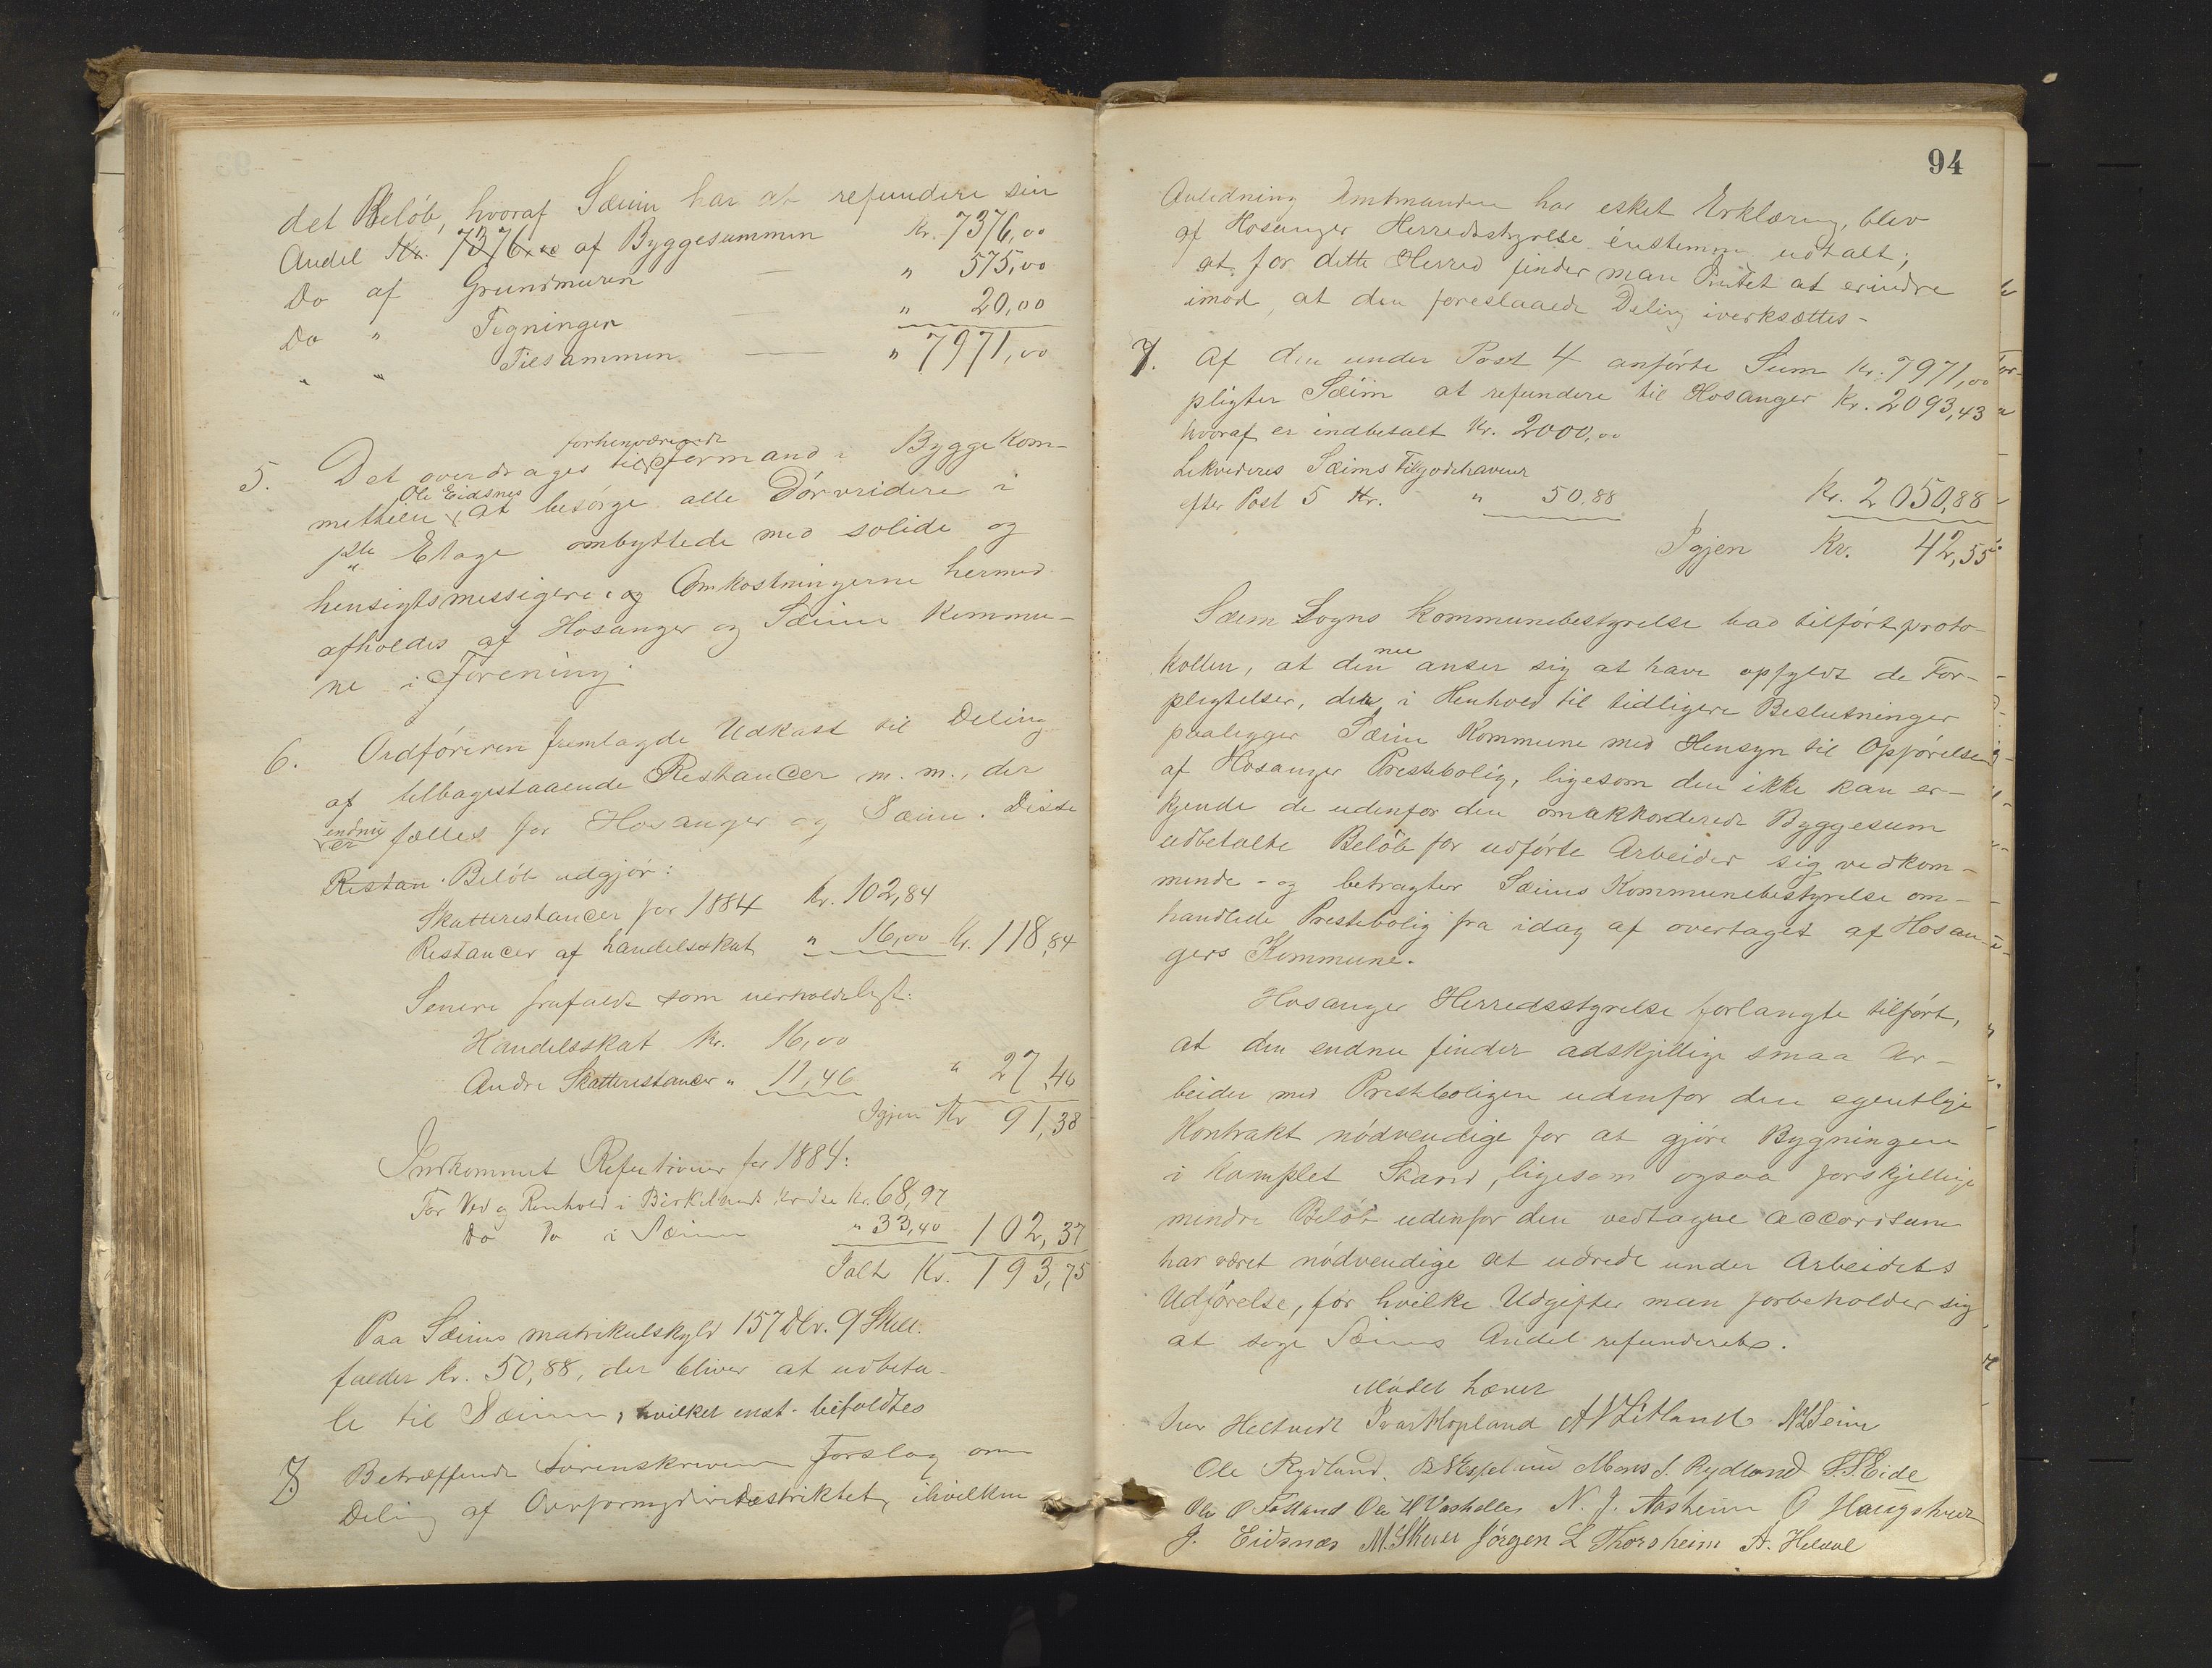 det Beløb, hvoraf Sæim har at refundere sin
Andel Kr. 7376,00 af Byggesummen Kr. 7376,00
Do af Grundmuren — " 575,00
Do " Tegninger — " 20,00
" " Tilsammen — " 7971,00
forhenværende
5. Det overdrages til Formand i Byggekom-
Ole Eidsnes
mitheen at besørge alle Dørvridere i
1ste Etage ombyttede med solide og
hensigtsmessigere og Omkostningerne hermed
afholdes af Hosanger og Sæim Kommu-
ne i Forening.
6. Ordføreren fremlagde Udkast til Deling
af tilbagestaaende Restancer m. m., der
endnu
er fælles for Hosanger og Sæim. Disse
Restan. Beløb udgjør:
Skatterestancer for 1884 Kr. 102,84
Restancer af handelsskat " 16,00 Kr. 118,84
Senere frafaldt som uerholdeligt:
Handelsskat Kr. 16,00
Andre Skatterestancer " 11,46 " 27,46
Igjen Kr 91,38
Indkommet for 1884:
For Ved og Renhold i Birkelands Kredse Kr. 68,97
Do Do i Sæim " 33,40 102,37
Ialt Kr. 193,75
Paa Sæims matrikulskyld 157 Dlr. 9 Skill.
falder Kr. 50,88, der bliver at udbeta-
le til Sæim, hvilket enst. bifaldtes
7. Betræffende Sorenskriverens Forslag om
Deling af i hvilken
94
Anledning Amtmanden har esket Erklæring, blev
af Hosanger Herredsstyrelse enstemmig udtalt;
at for dette Herred finder man Intet at erindre
imod, at den foreslaaede Deling iverksættes-
7. Af den under Post 4 anførte Sum Kr. 7971,00
pligter Sæim at refundere til Hosanger Kr. 2093,43
hvoraf er indbetalt Kr. 2000,00
Likvideres Sæims Tilgodehavener
efter Post 5 Kr. " 50,88 Kr. 2050,88
Igjen Kr. 42,55
Sæim Sogns Kommunebestyrelse bad tilført proto-
nu
kollen, at den anser sig at have opfyldt de For-
pligtelser, der i Henhold til tidligere Beslutninger
paaligger Sæim Kommune med Hensyn til Opførelsen
af Hosanger Prestebolig, ligesom den ikke kan er-
kjende de udenfor den omakkorderede Byggesum
udbetalte Beløb for udførte Arbeider sig vedkom-
mende - og betragter Sæims Kommunebestyrelse om-
handlede Prestebolig fra idag af overtaget af Hosan-
gers Kommune.
Hosanger Herredsstyrelse forlangte tilført,
at den endnu finder adskjellige smaa Ar-
beider med Presteboligen udenfor den egentlige
Kontrakt nødvendige for at gjøre Bygningen
i komplet Stand, ligesom ogsaa forskjellige
mindre Beløb udenfor den vedtagne accordsum
har været nødvendige at udrede under Arbeidets
Udførelse, for hvilke Udgifter man forbeholder sig
at søge Sæims Andel refunderet.
Mødet hævet
Iver Heltvedt Ivar Hopland A N Litland N L Seim
Ole Rydland. Mons J. Rydland S. S. Eide
Ole O Fotland Ole N. J. Aasheim O Haugstved
J. Eidsnæs M. Skuer Jørgen L Thorsheim A. Helaul